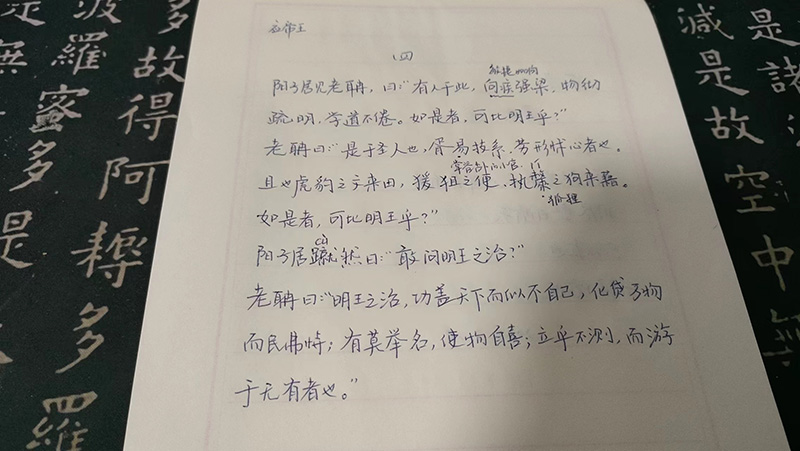 应帝王
(四)
敏捷
阳子居见老聃,曰:"有人于此,向疾强梁,物彻
疏明,学道不倦。如是者,可比明王乎?"
老聃曰:"是于圣人也,胥易技系,劳形怵心者也。
掌占卜的小官 lí
且也虎豹之文来田,猨狙之便、执斄之狗来藉。
狐狸
如是者,可比明王乎?"
cù
阳子居蹴然曰:"敢问明王之治?"
老聃曰:"明王之治,功盖天下而似不自己,化贷万物
而民弗恃;有莫举名,使物自喜;立乎不测,而游
于无有者也。"
是諸
減是故空中無
多故得阿耨多羅
波羅蜜多是